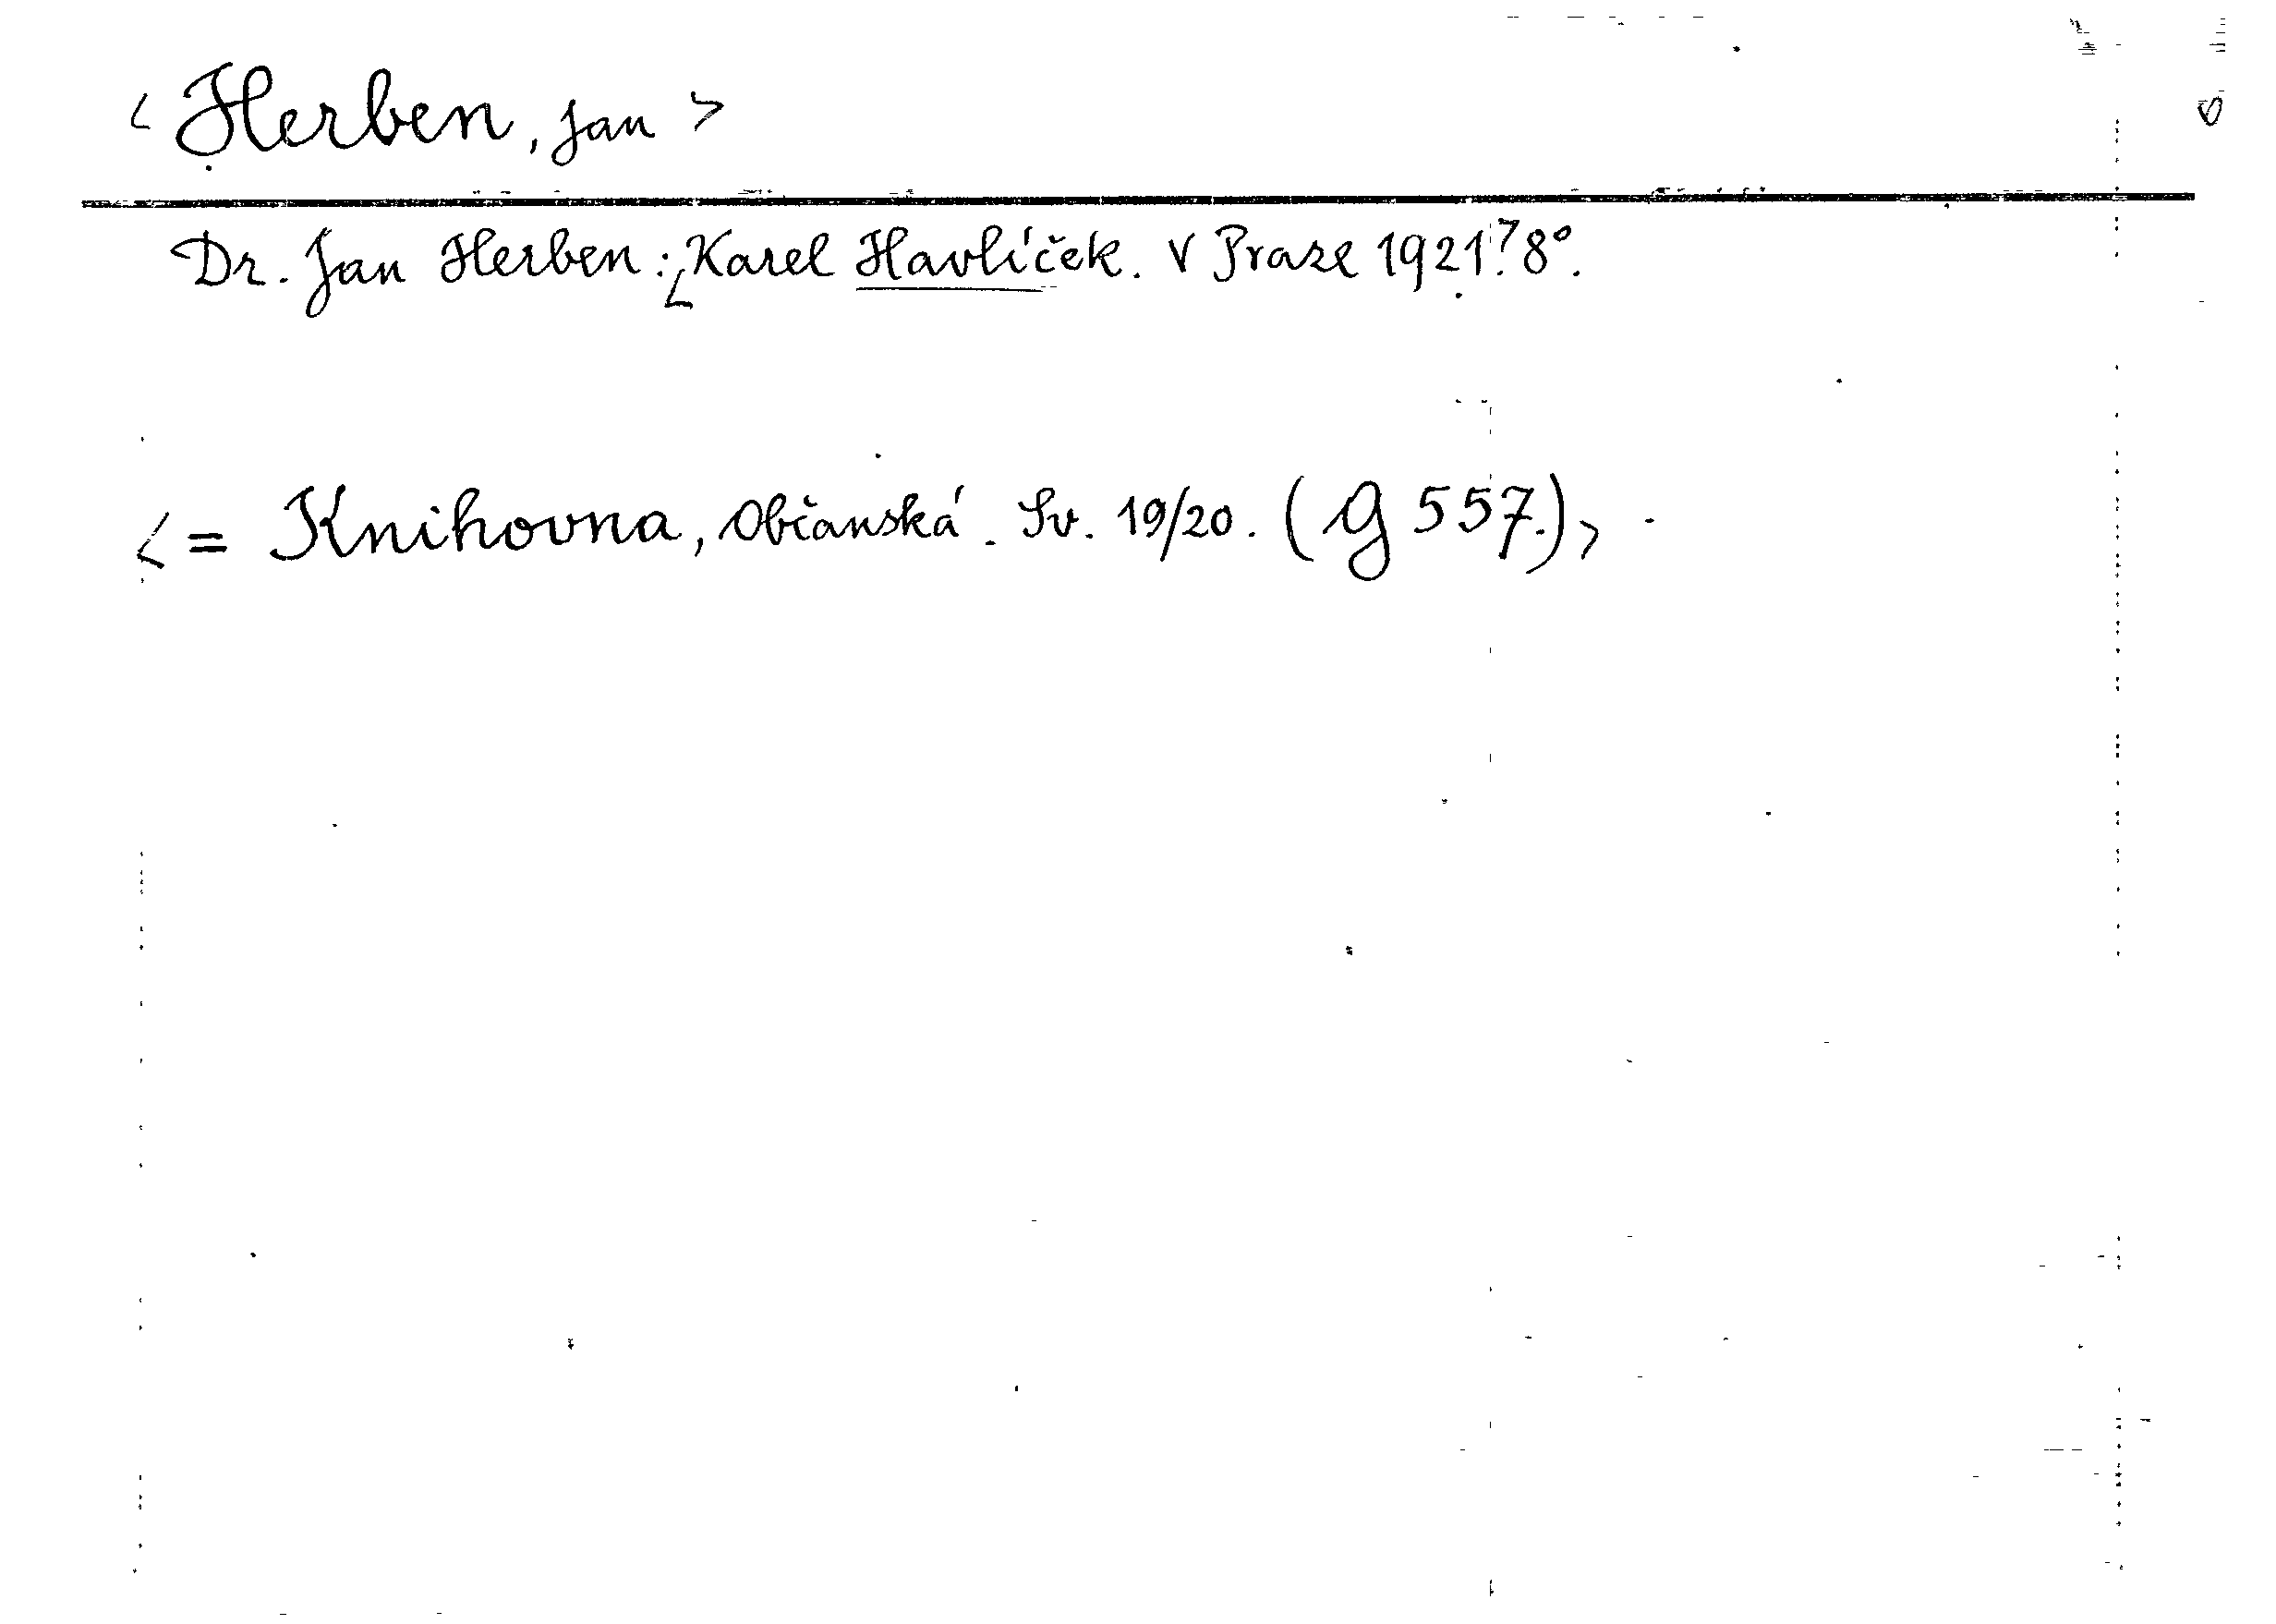 < Herben, Jan >
Dr. Jan Herben: <Karel Havlíček. V Praze 1921.> 8°.
<= Knihovna, Občanská. Sv. 19/20. (G 557.)>